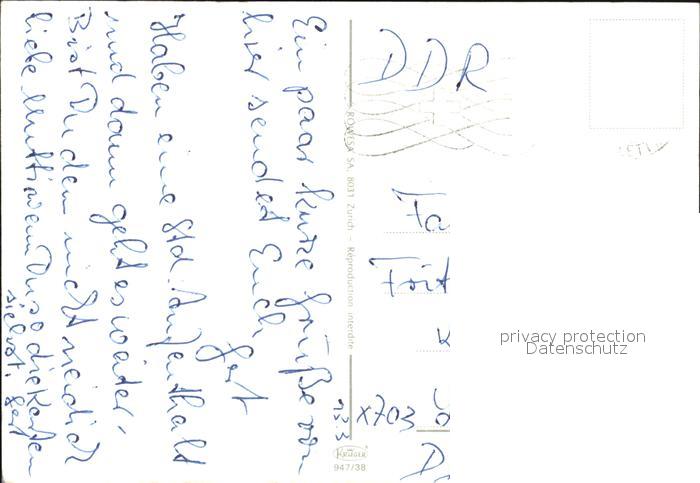 Ein paar kurze Grüße von
hier sendet Euch
Gert
Haben eine Std. Aufenthalt
und dann geht es weiter.
Bist Du den nicht neidisch
liebe Mutti wenn Du so die Karten
siehst. Gert
13.3
ROWISA SA, 8031 Zürich - Reproduction interdite
KRÜGER
947/38
DDR
Fa
Frit
K
X703
D
privacy protection
Datenschutz